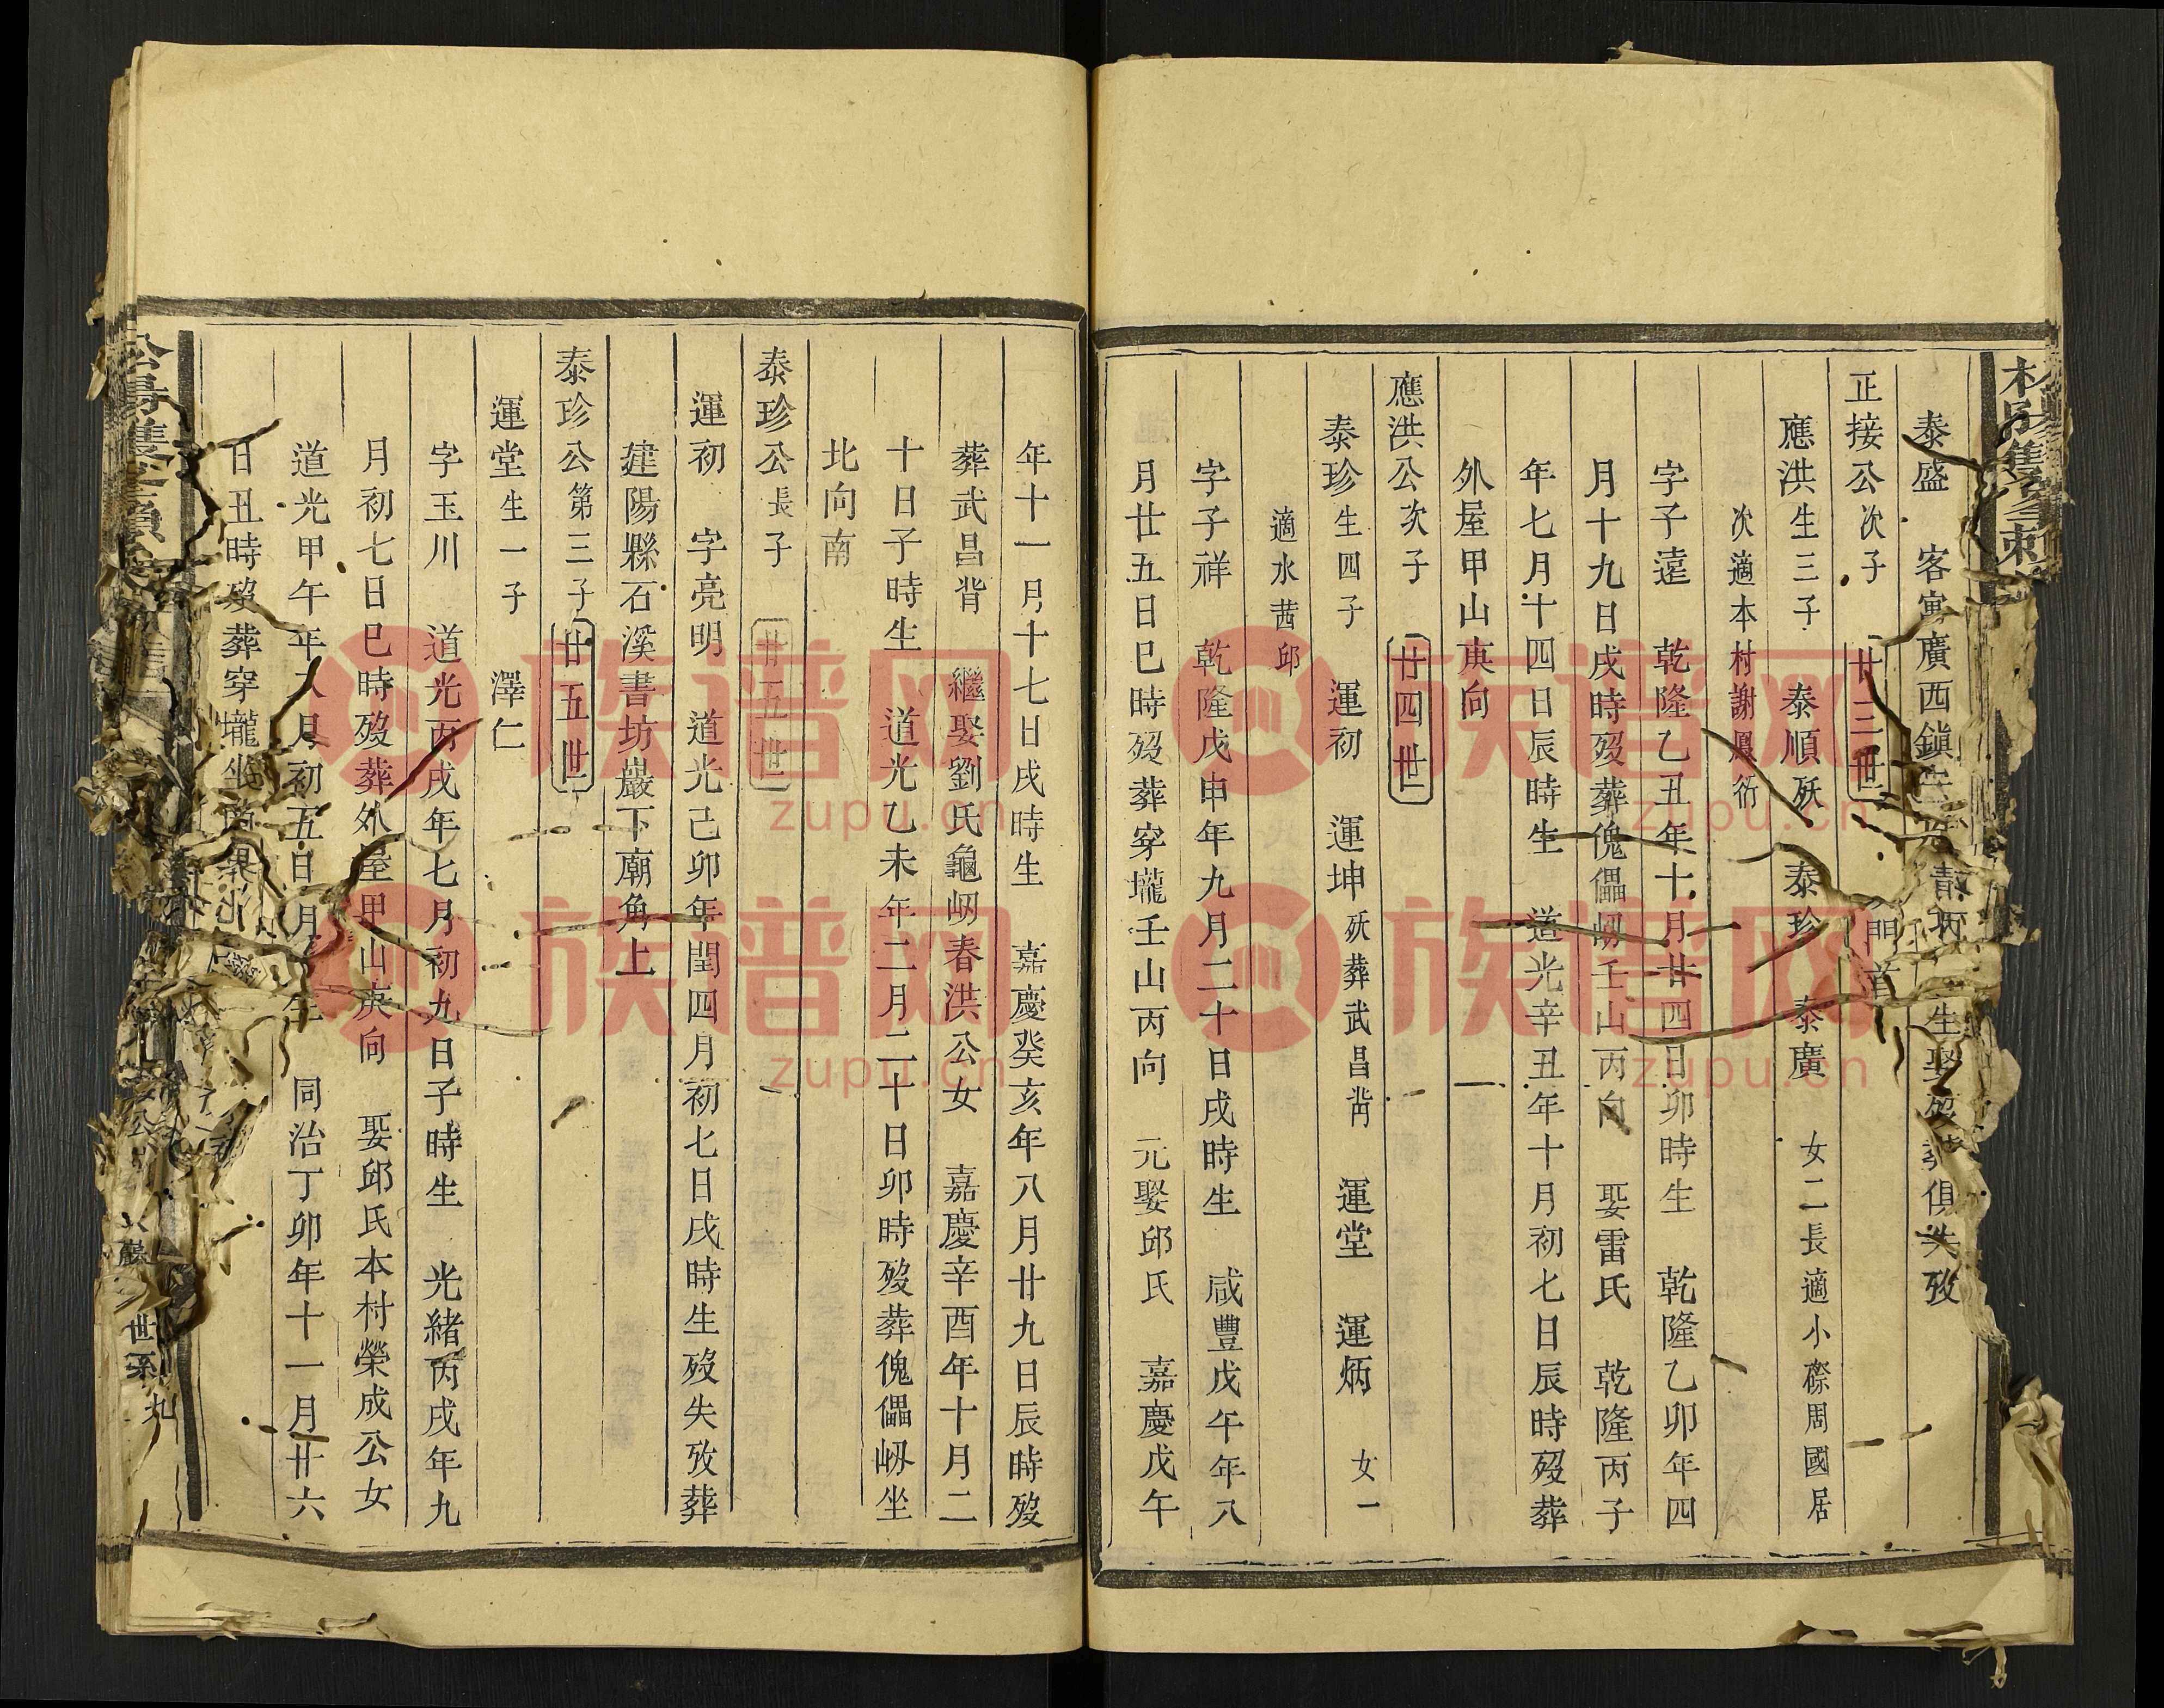 泰盛 客寓廣西鎮 生娶歿葬俱失攷
正接公次子 廿三世
應洪生三子 泰順殀 泰珍 泰廣 女二長適小磜周國居
次適本村謝鳳衍
字子遠 乾隆乙丑年十月廿四日卯時生 乾隆乙卯年四
月十九日戌時歿葬傀儡㘭壬山丙向 娶雷氏 乾隆丙子
年七月十四日辰時生 道光辛丑年十月初七日辰時歿葬
外屋甲山庚向
應洪公次子 廿四世
泰珍生四子 運初 運坤殀葬武昌背 運堂 運炳 女一
適水茜邱
字子祥 乾隆戊申年九月二十日戌時生 咸豐戊午年八
月廿五日巳時歿葬穿壠壬山丙向 元娶邱氏 嘉慶戊午
年十一月十七日戌時生 嘉慶癸亥年八月廿九日辰時歿
葬武昌背 繼娶劉氏龜㘭春洪公女 嘉慶辛酉年十月二
十日子時生 道光乙未年二月二十日卯時歿葬傀儡㘭坐
北向南
泰珍公長子 廿五世
運初 字亮明 道光己卯年閏四月初七日戌時生歿失攷葬
建陽縣石溪書坊巖下廟角上
泰珍公第三子 廿五世
運堂生一子 澤仁
字玉川 道光丙戌年七月初九日子時生 光緒丙戌年九
月初七日巳時歿葬外屋甲山庚向 娶邱氏本村榮成公女
道光甲午年 月初五日 同治丁卯年十一月廿六
日丑時歿葬穿壠坐
世系 九